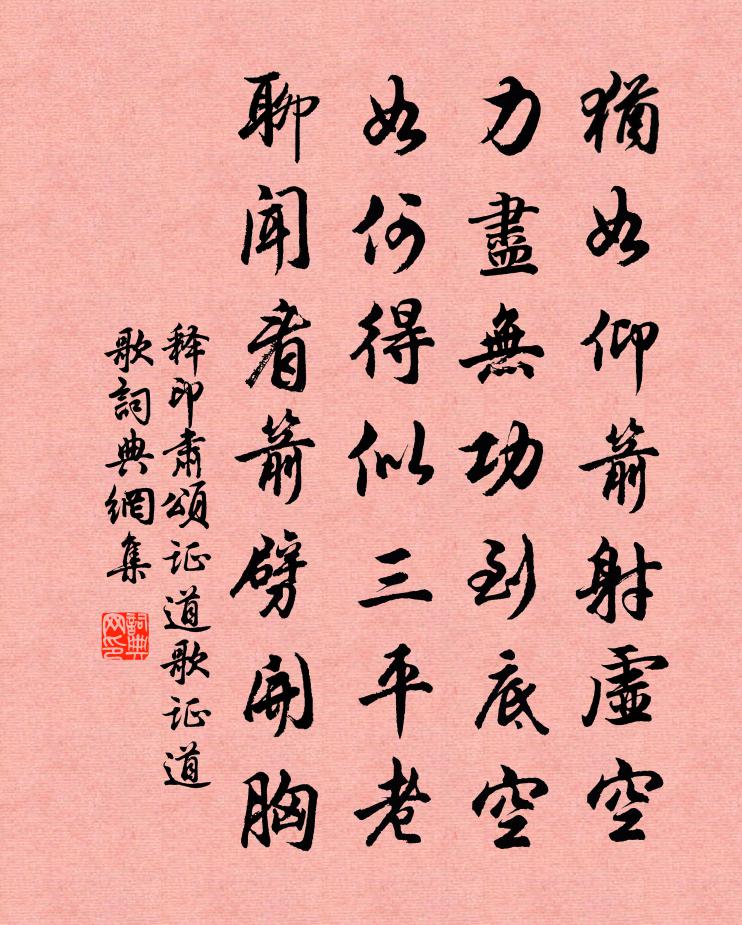 猶如仰箭射虛空
力盡無功到底空
如何得似三平老
聊聞看箭劈開胸
释印肃頌证道歌证道
歌詞典網集
詞典網印